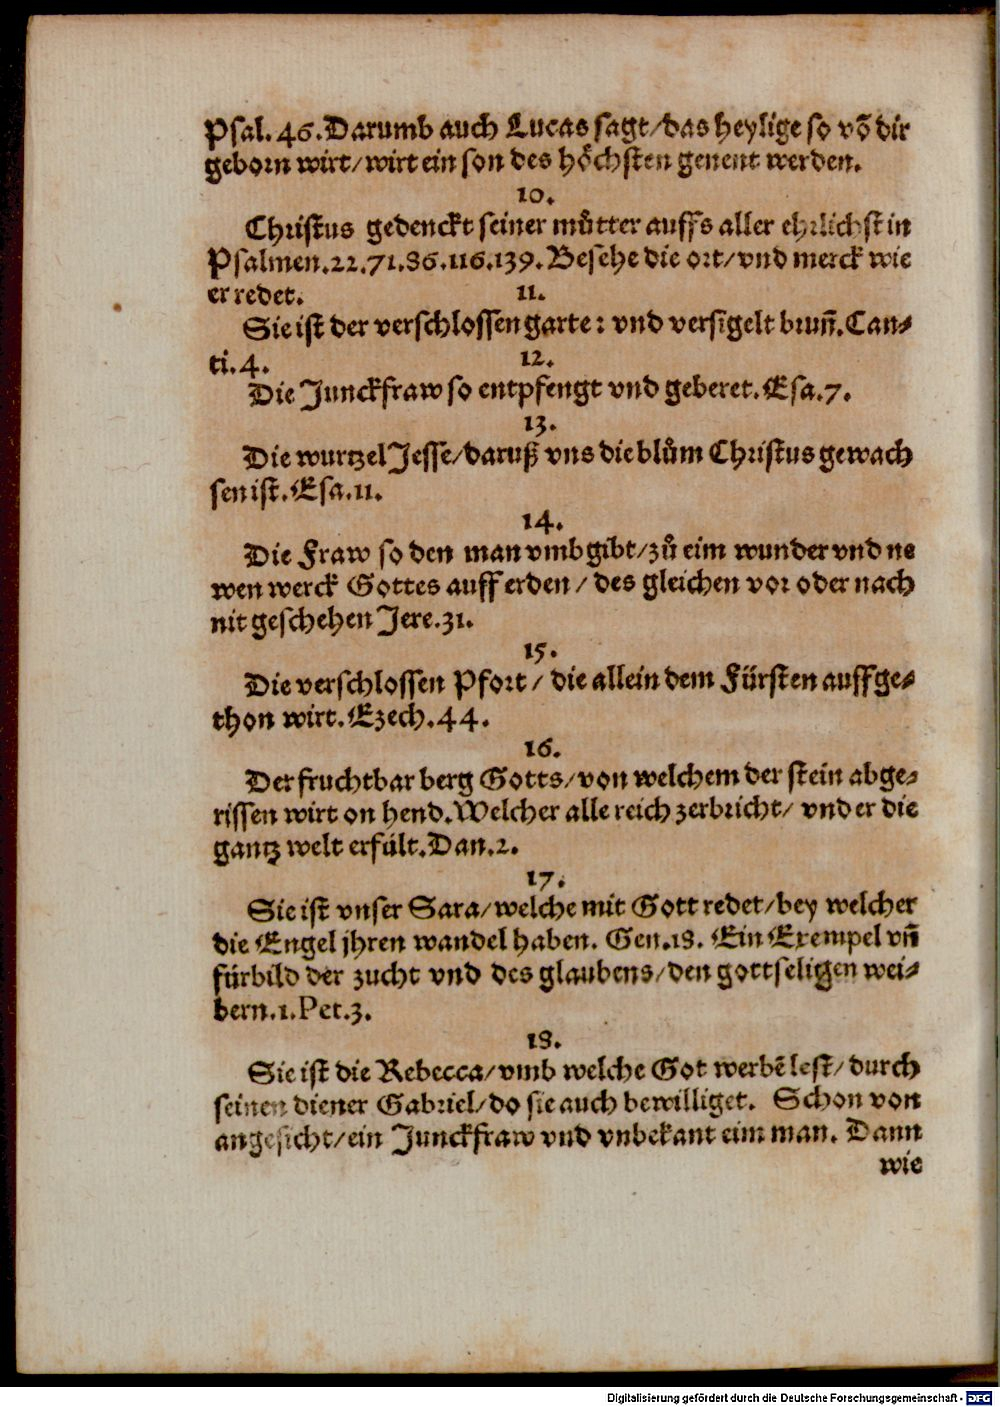 Psal. 46. Darumb auch Lucas sagt/das heylige so võ dir
geborn wirt/wirt ein son des höchsten genent werden.
10.
Christus gedenckt seiner můtter auffs aller ehrlichst in
Psalmen.22.71.86.116.139. Besehe die ort/vnd merck wie
er redet. 11.
Sie ist der verschlossen garte: vnd versigelt brun̄. Can⸗
ti.4. 12.
Die Junckfraw so entpfengt vnd geberet. Esa.7.
13.
Die wurtzel Jesse/daruß vns die blům Christus gewach
sen ist. Esa.11.
14.
Die Fraw so den man vmbgibt/zů eim wunder vnd ne
wen werck Gottes auff erden/des gleichen vor oder nach
nit geschehen Jere.31.
15.
Die verschlossen Pfort/die allein dem Fürsten auffge⸗
thon wirt. Ezech.44.
16.
Der fruchtbar berg Gotts/von welchem der stein abge⸗
rissen wirt on hend. Welcher alle reich zerbricht/vnd er die
gantz welt erfült. Dan.2.
17.
Sie ist vnser Sara/welche mit Gott redet/bey welcher
die Engel jhren wandel haben. Gen.18. Ein Exempel vn̄
fürbild der zucht vnd des glaubens/den gottseligen wei⸗
bern.1.Pet.3.
18.
Sie ist die Rebecca/vmb welche Got werbẽ lest/durch
seinen diener Gabriel/do sie auch bewilliget. Schon von
angesicht/ein Junckfraw vnd vnbekant eim man. Dann
wie
Digitalisierung gefördert durch die Deutsche Forschungsgemeinschaft - DFG